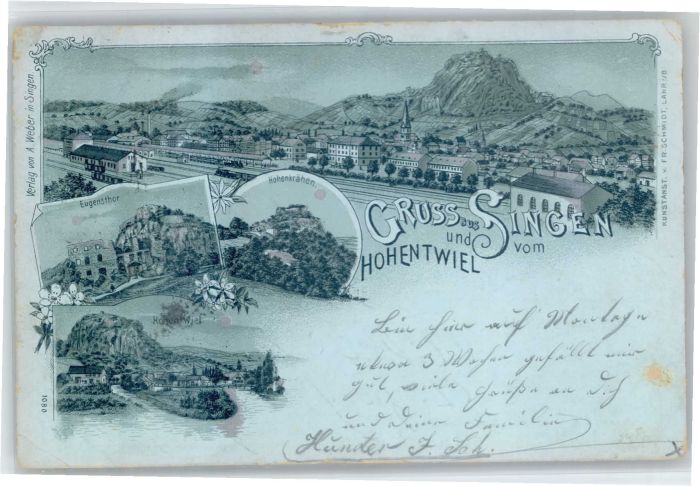 Verlag von A. Weber in Singen
KUNSTANST. v. FR. SCHMIDT, LAHR i/B
Eugensthor
Hohenkrähen
GRUSS aus SINGEN
und vom
HOHENTWIEL
Hohentwiel
1080
Bin hier auf Montage
etwa 3 Wochen gefällt mir
gut, viele Grüße an dich
und deine Familie